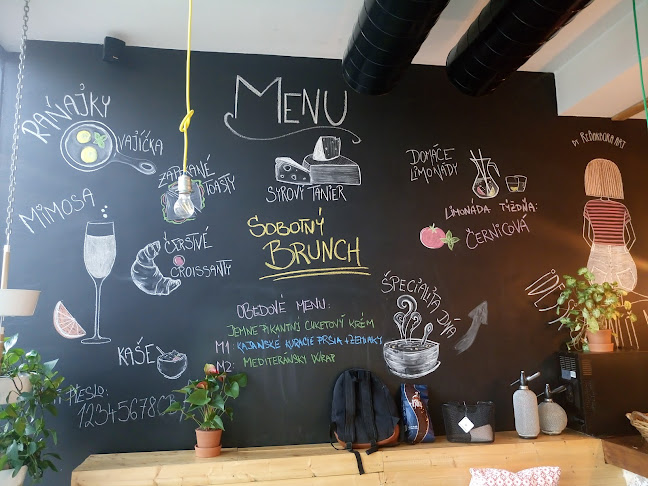 MENU
RAŇAJKY
VAJÍČKA
ZAPEKANÉ
TOASTY
MIMOSA
ČERSTVÉ
CROISSANTY
KAŠE
SYROVÝ TANIER
SOBOTNÝ
BRUNCH
OBEDOVÉ MENU:
JEMNE PIKANTNÝ CUKETOVÝ KRÉM
M1: KAJANSKÉ KURACIE PRSIA + ZEMIAKY
M2: MEDITERÁNSKY WRAP
DOMÁCE
LIMONÁDY
LIMONÁDA TÝŽDŇA:
ČERNICOVÁ
ŠPECIALITA DŇA
12345678